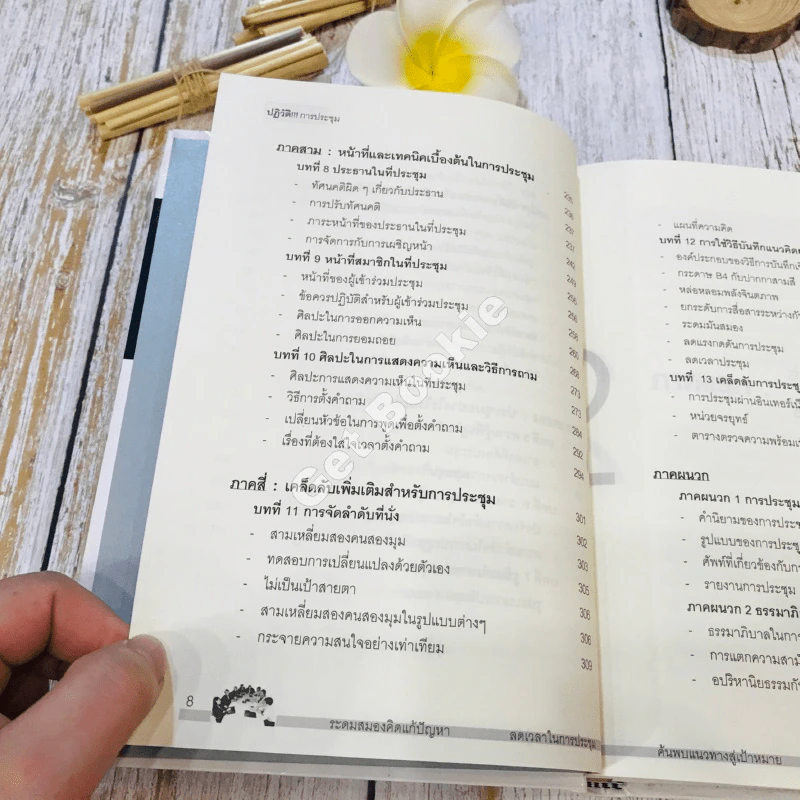 ปฏิวัติ!!! การประชุม
ภาคสาม : หน้าที่และเทคนิคเบื้องต้นในการประชุม
บทที่ 8 ประธานในที่ประชุม
- ทัศนคติผิด ๆ เกี่ยวกับประธาน
- การปรับทัศนคติ
- ภาระหน้าที่ของประธานในที่ประชุม
- การจัดการกับการเผชิญหน้า
บทที่ 9 หน้าที่สมาชิกในที่ประชุม
- หน้าที่ของผู้เข้าร่วมประชุม
- ข้อควรปฏิบัติสำหรับผู้เข้าร่วมประชุม
- ศิลปะในการออกความเห็น
- ศิลปะในการยอมถอย
บทที่ 10 ศิลปะในการแสดงความเห็นและวิธีการถาม
- ศิลปะการแสดงความเห็นในที่ประชุม
- วิธีการตั้งคำถาม
- เปลี่ยนหัวข้อในการพูดเพื่อตั้งคำถาม
- เรื่องที่ต้องใส่ใจเวลาตั้งคำถาม
ภาคสี่ : เคล็ดลับเพิ่มเติมสำหรับการประชุม
บทที่ 11 การจัดลำดับที่นั่ง
- สามเหลี่ยมสองคนสองมุม
- ทดสอบการเปลี่ยนแปลงด้วยตัวเอง
- ไม่เป็นเป้าสายตา
- สามเหลี่ยมสองคนสองมุมในรูปแบบต่างๆ
- กระจายความสนใจอย่างเท่าเทียม
235
236
237
237
242
249
256
256
258
260
268
273
273
284
292
294
301
302
303
305
306
306
309
8
ระดมสมองคิดแก้ปัญหา
ลดเวลาในการประชุม
- แผนที่ความคิด
บทที่ 12 การใช้วิธีบันทึกแนวคิด
- องค์ประกอบของวิธีการบันทึก
- กระดาษ B4 กับปากกาสามสี
- หล่อหลอมพลังจินตภาพ
- ยกระดับการสื่อสารระหว่าง
- ระดมมันสมอง
- ลดแรงกดดันการประชุม
- ลดเวลาประชุม
บทที่ 13 เคล็ดลับการประชุม
- การประชุมผ่านอินเทอร์เน็
- หน่วยจรยุทธ์
- ตารางตรวจความพร้อม
ภาคผนวก
ภาคผนวก 1 การประชุม
- คำนิยามของการประชุ
- รูปแบบของการประชุ
- ศัพท์ที่เกี่ยวข้องกับก
- รายงานการประชุม
ภาคผนวก 2 ธรรมาภิ
- ธรรมาภิบาลในการ
- การแตกความสามั
- อปริหานิยธรรมกั
ค้นพบแนวทางสู่เป้าหมาย
Get Bookie